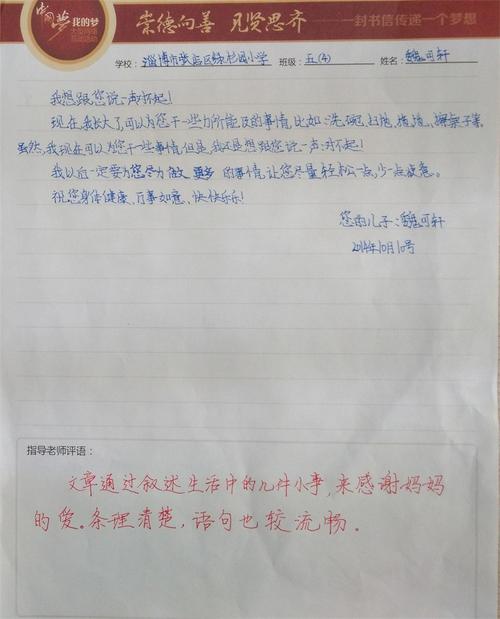 中国梦 我的梦
大型网络
互动活动
崇德向善 见贤思齐
一封书信传递一个梦想
学校：淄博市张店区绿杉园小学 班级：五(4) 姓名：魏可轩
我想跟您说一声对不起！
现在，我长大了，可以为您干一些力所能及的事情，比如：洗碗、扫地、擦桌子等。
虽然，我现在可以为您干一些事情，但是，我还是想跟您说一声：对不起！
我以后一定要为您尽力做更多的事情，让您尽量轻松一点，少一点疲惫。
祝您身体健康、万事如意、快快乐乐！
您的儿子：魏可轩
2014年10月10号
指导老师评语：
文章通过叙述生活中的几件小事，来感谢妈妈
的爱。条理清楚，语句也较流畅。